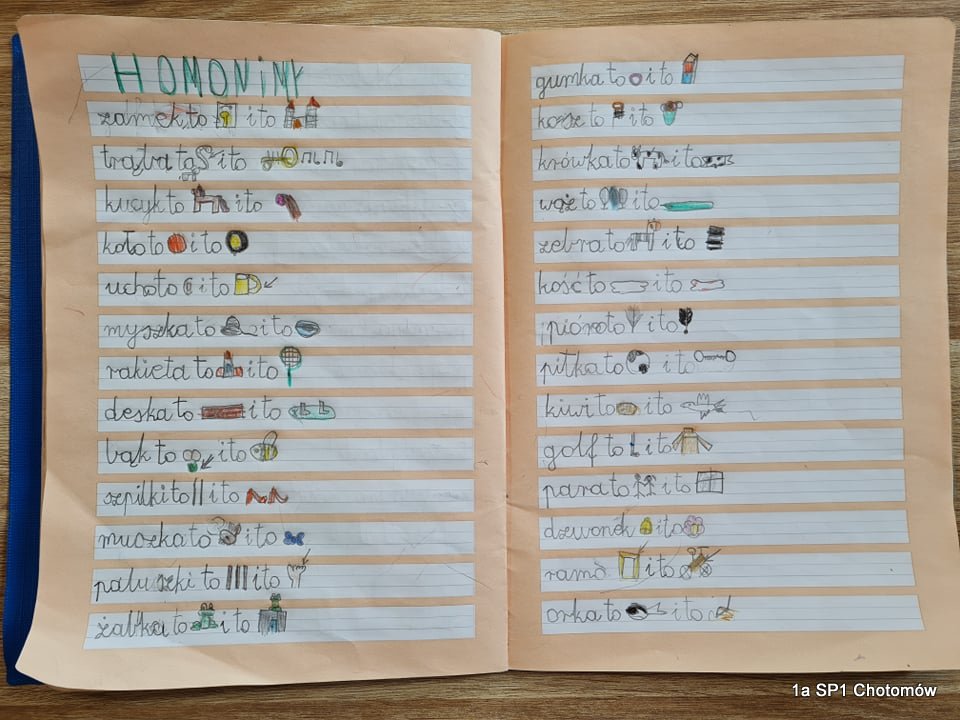 HOMONiMY
zamek to i to
trąba to i to
kucyk to i to
koło to i to
ucho to i to
myszka to i to
rakieta to i to
deska to i to
bąk to i to
szpilki to i to
muszka to i to
paluszki to i to
żabka to i to
gumka to i to
kosz to i to
krówka to i to
wąż to i to
zebra to i to
kość to i to
pióro to i to
piłka to i to
kiwi to i to
golf to i to
para to i to
dzwonek i to
rama i to
orka to i to
1a SP1 Chotomów